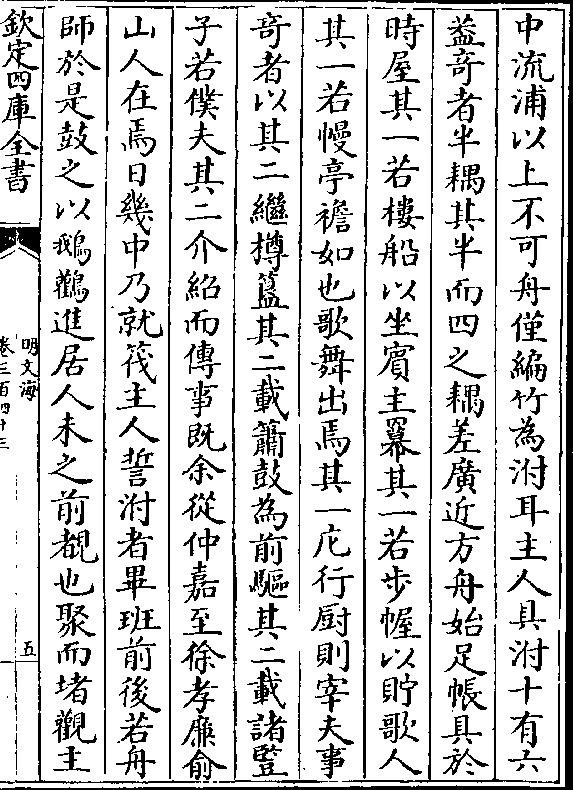 中流浦以上不可舟僅編竹為泭耳主人具泭十有六
葢竒者半耦其半而四之耦差廣近方舟始足帳具於
時屋其一若樓船以坐賓主羃其一若步幄以貯歌人
其一若幔亭襜如也歌舞出焉其一庀行厨則宰夫事
竒者以其二繼樽簋其二載簫鼓為前驅其二載諸豎
子若僕夫其二介紹而傳事既余從仲嘉至徐孝廉俞
山人在焉日幾中乃就筏主人誓泭者畢班前後若舟
師於是鼓之以鵝鸛進居人未之前覩也聚而堵觀主
欽定四庫全書
明文海
卷三百四十三
五